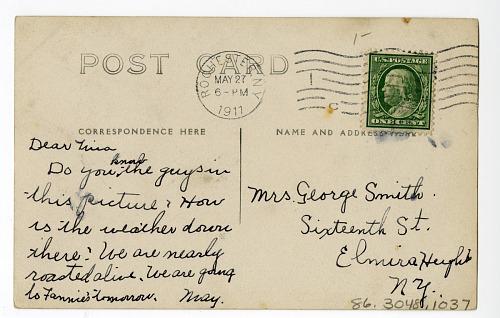 POST CARD
ROCHESTER, N.Y.
MAY 27
6-PM
1911
U.S. POSTAGE
ONE CENT
CORRESPONDENCE HERE
NAME AND ADDRESS HERE
Dear Nina
Do you know the guys in
this picture? How
is the weather down
there? We are nearly
roasted alive. We are going
to Fannie's tomorrow. May.
Mrs. George Smith.
Sixteenth St.
Elmira Heights
N.Y.
86.3048.1037